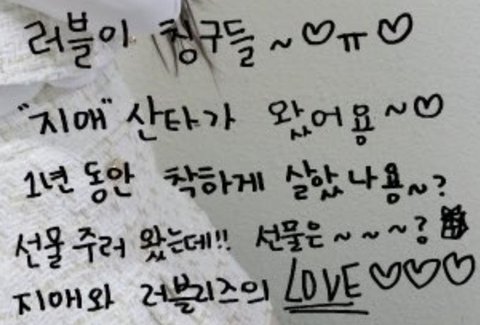 러블이 칭구들 ~♡ㅠ♡
"지애" 산타가 왔어용~♡
1년 동안 착하게 살았나용~?
선물 주러 왔는데!! 선물은~~~?
지애와 러블리즈의 LOVE♡♡♡